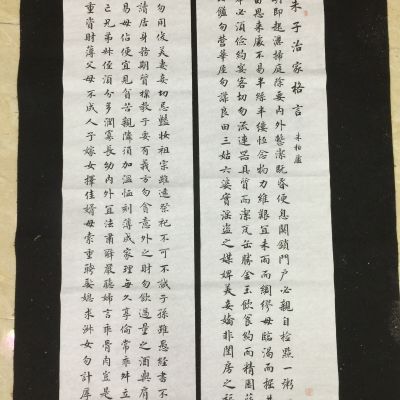 朱子治家格言 朱柏廬
明即起灑掃庭除要內外整潔既昏便息關鎖門戶必親自檢點一粥
當思來處不易半絲半縷恆念物力維艱宜未雨而綢繆毋臨渴而掘井
奉必須儉約宴客切勿流連器具質而潔瓦缶勝金玉飲食約而精園蔬
勿營華屋勿謀良田三姑六婆實淫盜之媒婢美妾嬌非閨房之福
勿用俊美妻妾切忌艷妝祖宗雖遠祭祀不可不誠子孫雖愚經書不
讀居身務期質樸教子要有義方勿貪意外之財勿飲過量之酒與肩
易毋佔便宜見貧苦親鄰須加溫恤刻薄成家理無久享倫常乖舛立
亡兄弟叔姪須分多潤寡長幼內外宜法肅辭嚴聽婦言乖骨肉豈是
重資財薄父母不成人子嫁女擇佳婿毋索重聘娶媳求淑女勿計厚